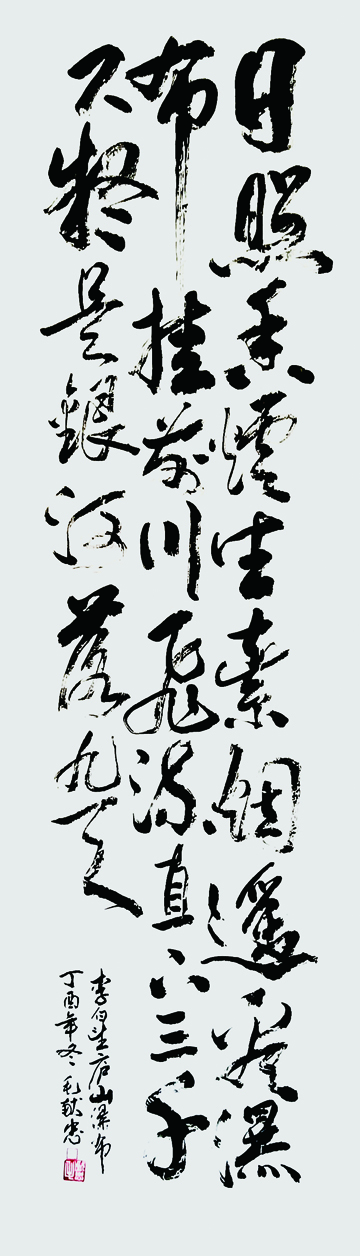 日照香爐生紫烟遥看瀑
布挂前川飛流直下三千
尺疑是銀河落九天
李白望庐山瀑布
丁酉年冬毛